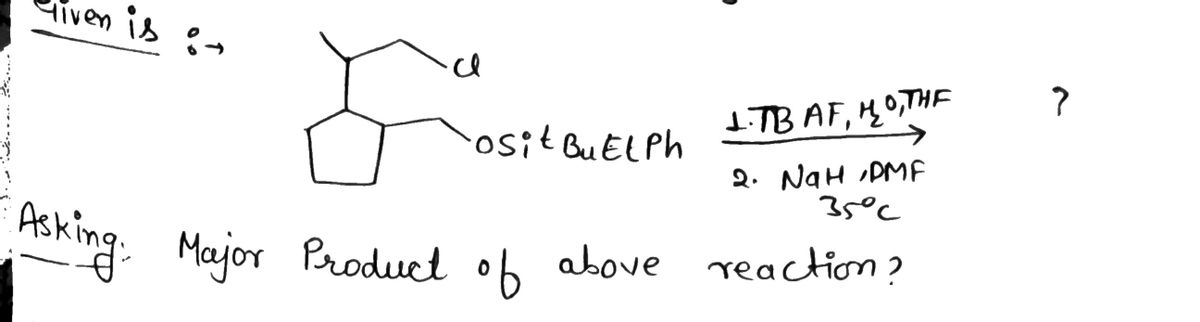 Given is :→
Cl
OSitBuEtPh
1. TBAF, H2O, THF
?
2. NaH, DMF
35°C
Asking: Major Product of above reaction?